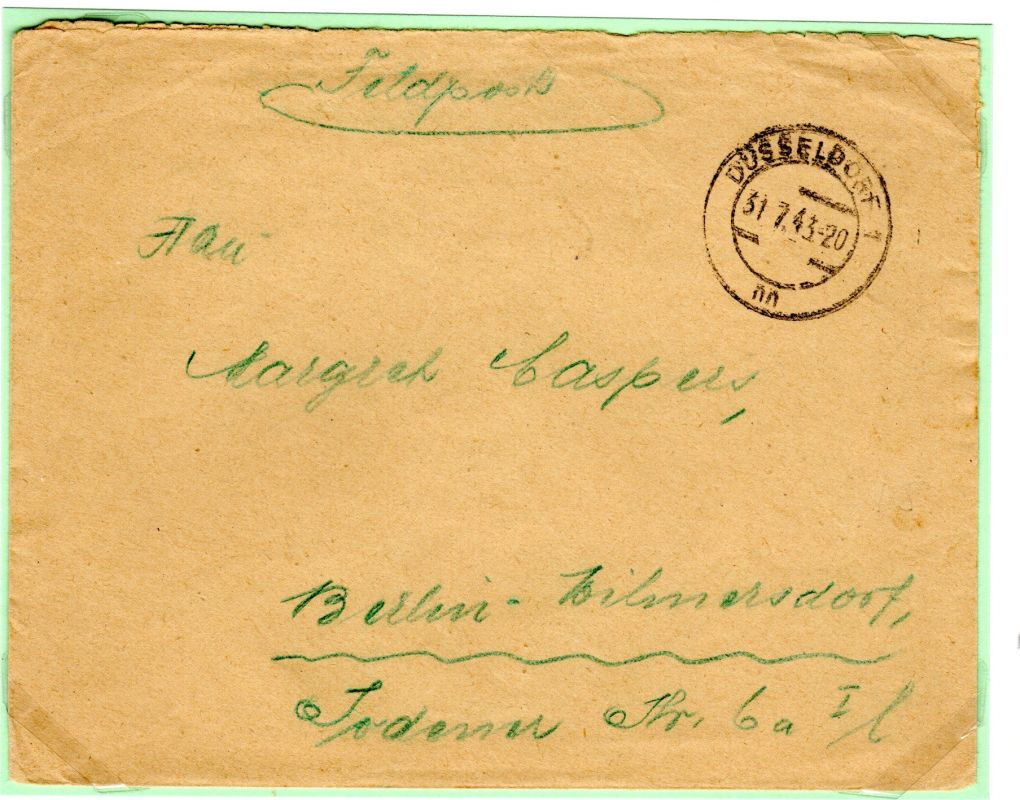 Feldpost
DÜSSELDORF 1
31.7.43-20
nn
Frau
Margret Caspers,
Berlin-Wilmersdorf,
Sodener Str. 6a I l